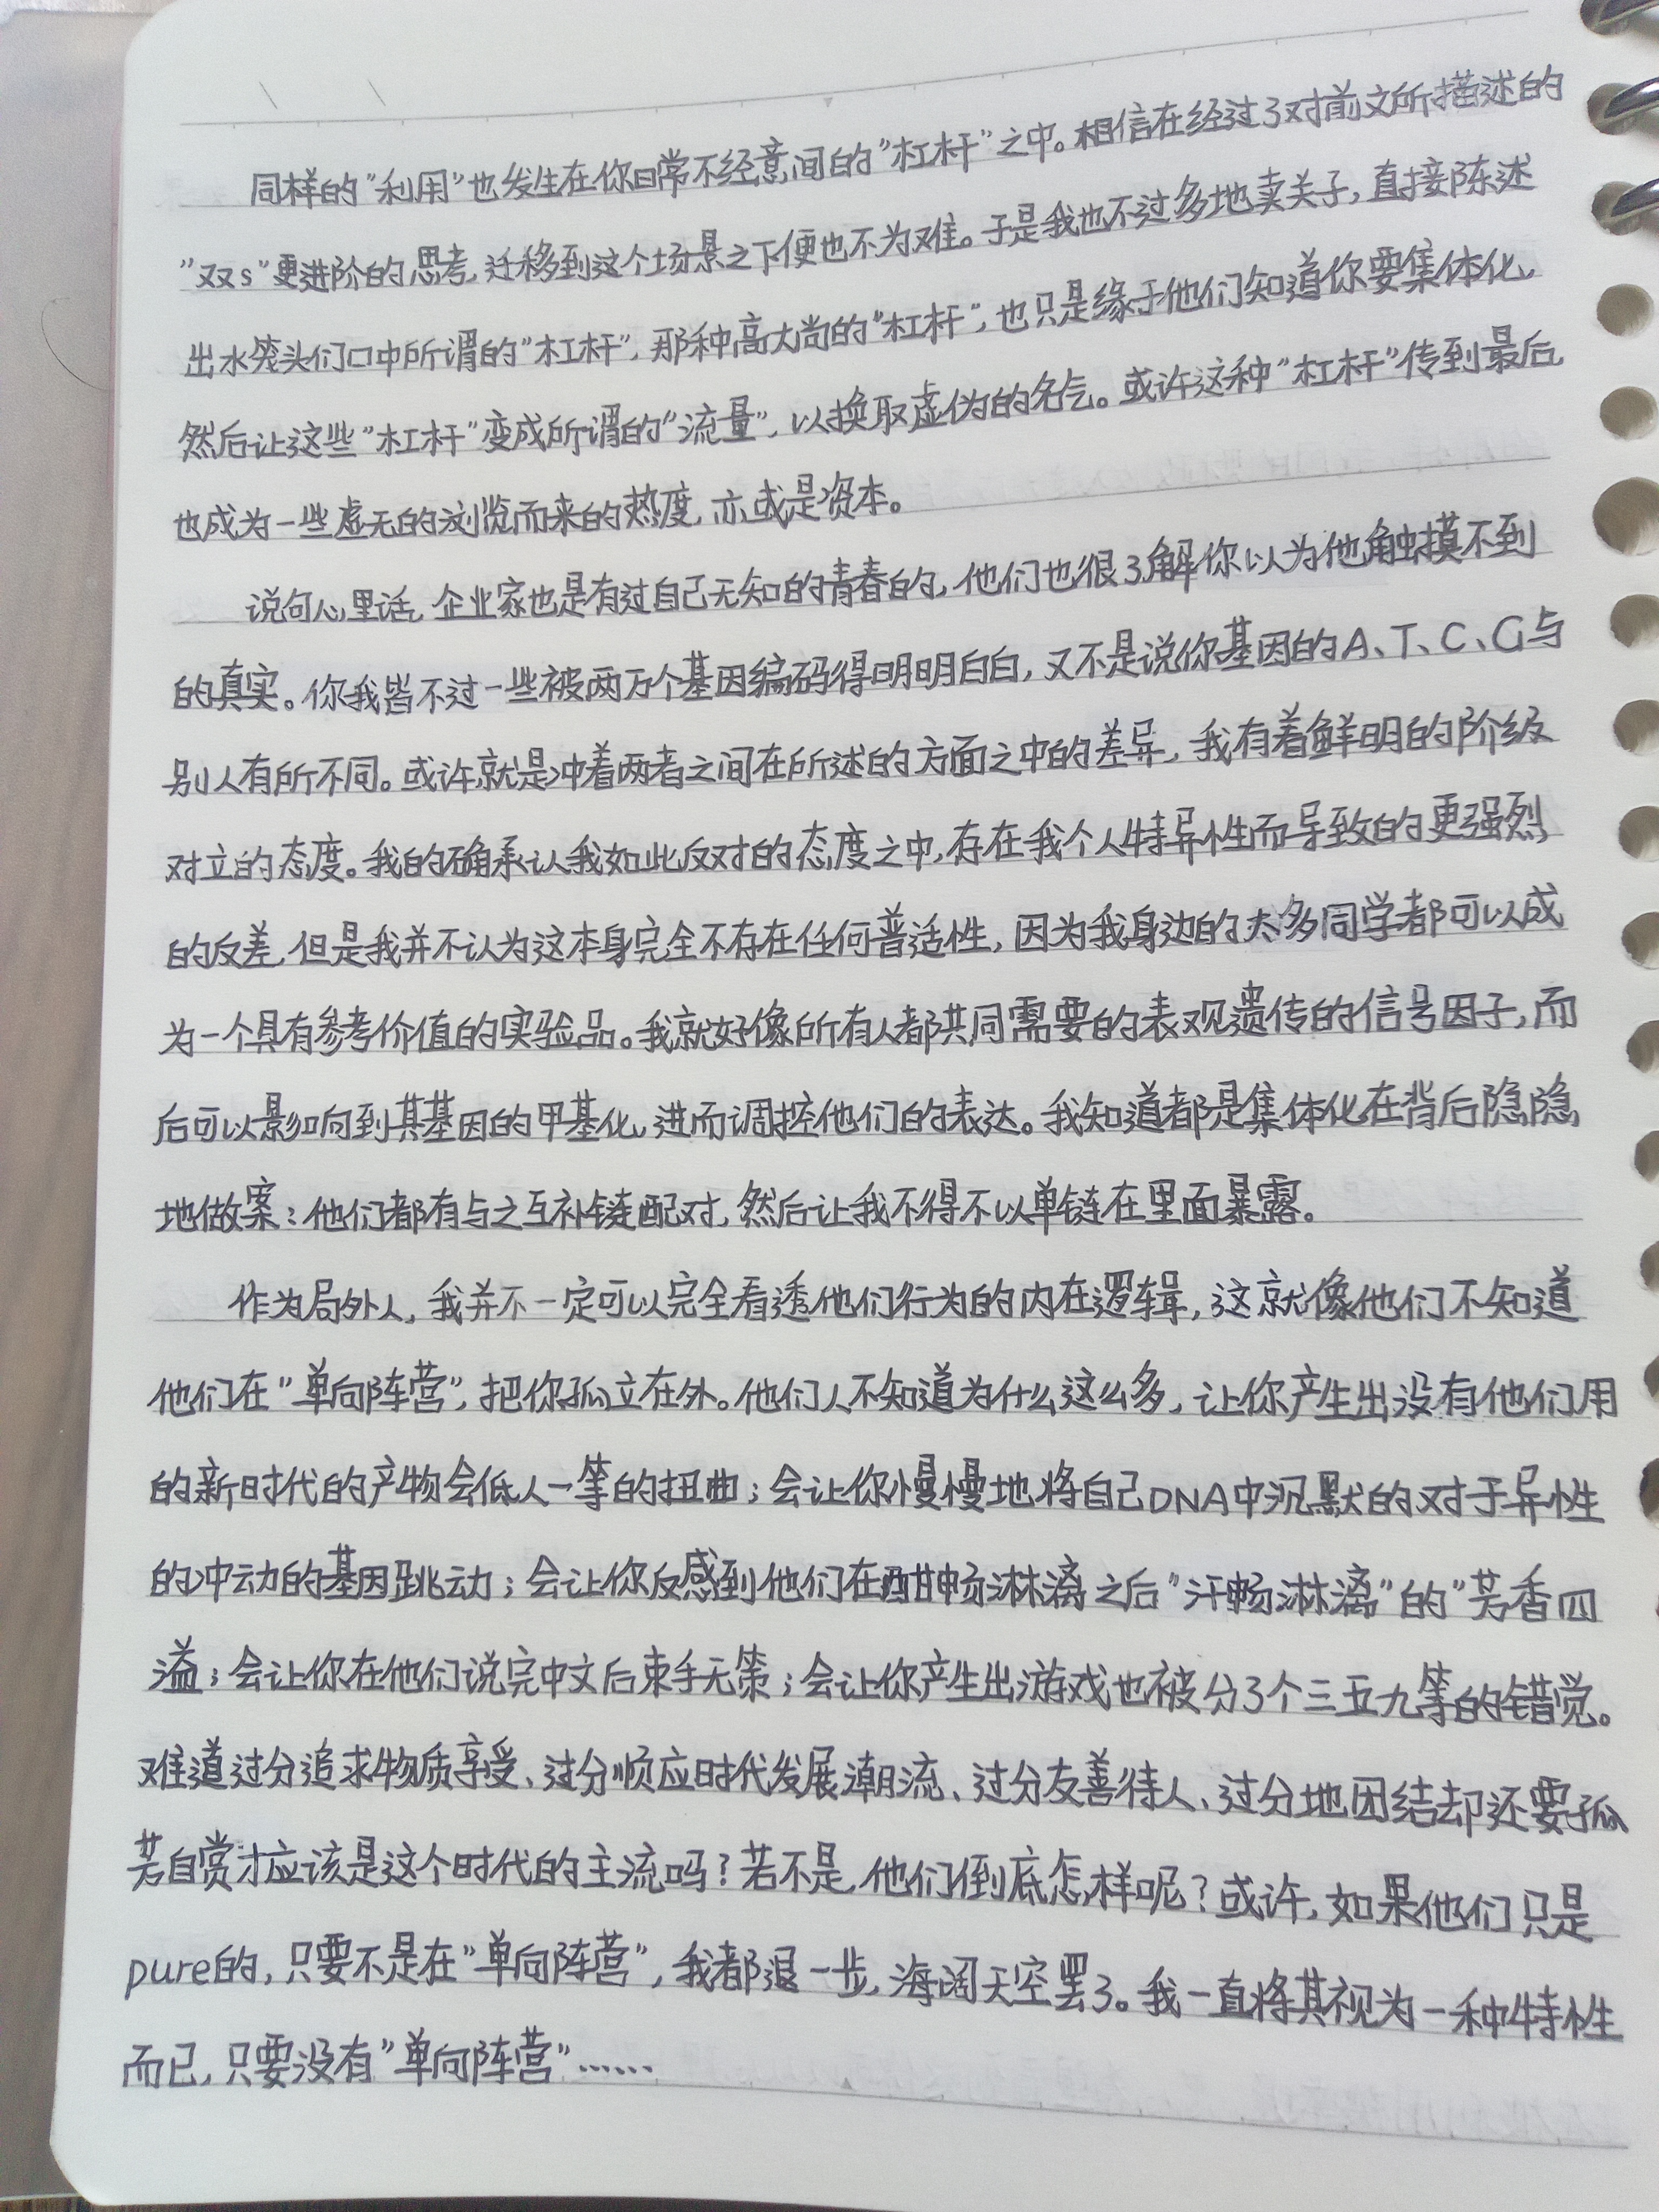 同样的"利用"也发生在你日常不经意间的"杠杆"之中。相信在经过了对前文所描述的
"双s"更进阶的思考,迁移到这个场景之下便也不为难。于是我也不过多地卖关子,直接陈述
出水笼头们口中所谓的"杠杆",那种高大尚的"杠杆",也只是缘于他们知道你要集体化,
然后让这些"杠杆"变成所谓的"流量",以换取虚伪的名气。或许这种"杠杆"传到最后,
也成为一些虚无的浏览而来的热度,亦或是资本。
说句心里话,企业家也是有过自己无知的青春的,他们也很了解你以为他触摸不到
的真实。你我皆不过一些被两万个基因编码得明明白白,又不是说你基因的A、T、C、G与
别人有所不同。或许就是冲着两者之间在所述的方面之中的差异,我有着鲜明的阶级
对立的态度。我的确承认我如此反对的态度之中,存在我个人特异性而导致的更强烈
的反差,但是我并不认为这本身完全不存在任何普适性,因为我身边的太多同学都可以成
为一个具有参考价值的实验品。我就好像所有人都共同需要的表观遗传的信号因子,而
后可以影响到其基因的甲基化,进而调控他们的表达。我知道都是集体化在背后隐隐
地做案:他们都有与之互补链配对,然后让我不得不以单链在里面暴露。
作为局外人,我并不一定可以完全看透他们行为的内在逻辑,这就像他们不知道
他们在"单向阵营",把你孤立在外。他们人不知道为什么这么多,让你产生出没有他们用
的新时代的产物会低人一等的扭曲;会让你慢慢地将自己DNA中沉默的对于异性
的冲动的基因跳动;会让你反感到他们在酣畅淋漓之后"汗畅淋漓"的"芳香四
溢;会让你在他们说完中文后束手无策;会让你产生出游戏也被分了个三五九等的错觉。
难道过分追求物质享受、过分顺应时代发展潮流、过分友善待人、过分地团结却还要孤
芳自赏才应该是这个时代的主流吗?若不是,他们到底怎样呢?或许,如果他们只是
pure的,只要不是在"单向阵营",我都退一步,海阔天空罢了。我一直将其视为一种特性
而已,只要没有"单向阵营"……